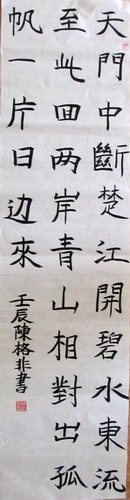 天門中斷楚江開碧水東流
至此回两岸青山相對出孤
帆一片日边來
壬辰陳格非書